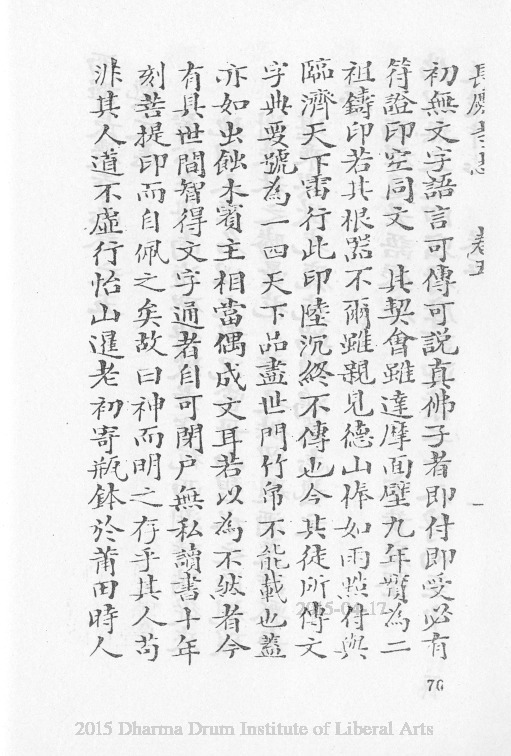 長慶 卷五 一
初無文字語言可傳可說真佛子者即付即受必有
符證印空同文 其契會雖達摩面壁九年贊為二
祖鑄印若其根器不爾雖親見德山棒如雨點付與
臨濟天下雷行此印陸沉終不傳也今其徒所傳文
字典要號為一四天下品盡世間竹帛不能載也蓋
亦如虫蝕木賓主相當偶成文耳若以為不然者今
有具世間智得文字通者自可閉戶無私讀書十年
刻菩提印而自佩之矣故曰神而明之存乎其人苟
非其人道不虛行怡山暹老初寄瓶鉢於莆田時人
76
2015-04-17
2015 Dharma Drum Institute of Liberal Arts